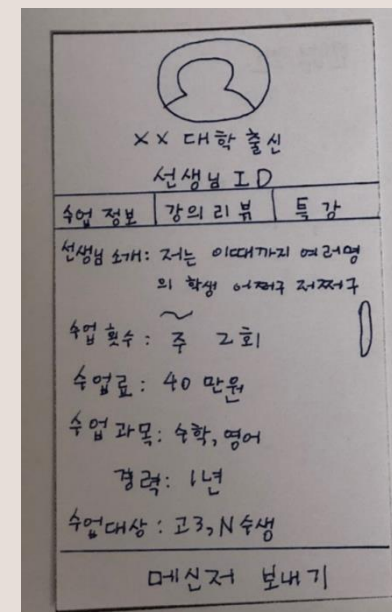 ×× 대학 출신
선생님 ID
수업 정보 강의 리뷰 특강
선생님 소개: 저는 이때까지 여러명
의 학생 어쩌구 저쩌구
수업 횟수: 주 2회
수업료: 40 만원
수업 과목: 수학, 영어
경력: 1년
수업대상: 고3, N수생
메신저 보내기